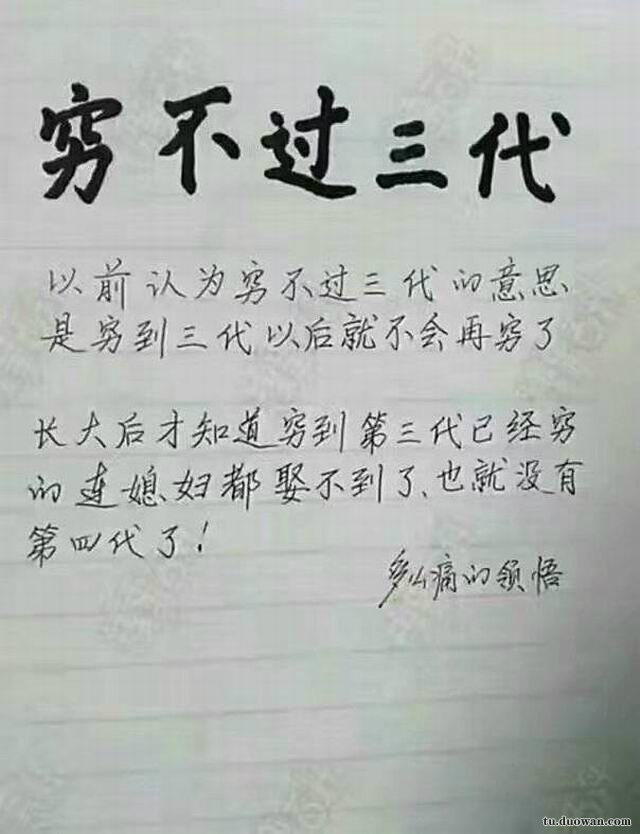 穷不过三代
以前认为穷不过三代的意思
是穷到三代以后就不会再穷了
长大后才知道穷到第三代已经穷
的连媳妇都娶不到了、也就没有
第四代了!
多么痛的领悟
tu.duowan.com